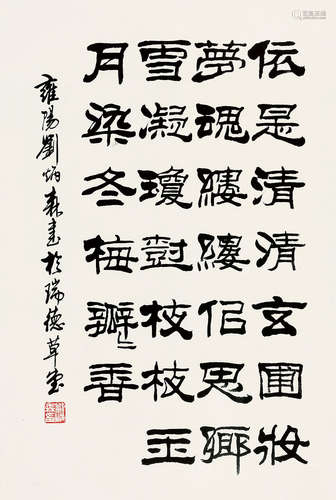 伝是清清玄圃妝
夢魂縷縷佀思鄉
雪凝瓊對枝枝玉
月染冬梅瓣〻香
雍陽劉炳森書於瑞德草堂